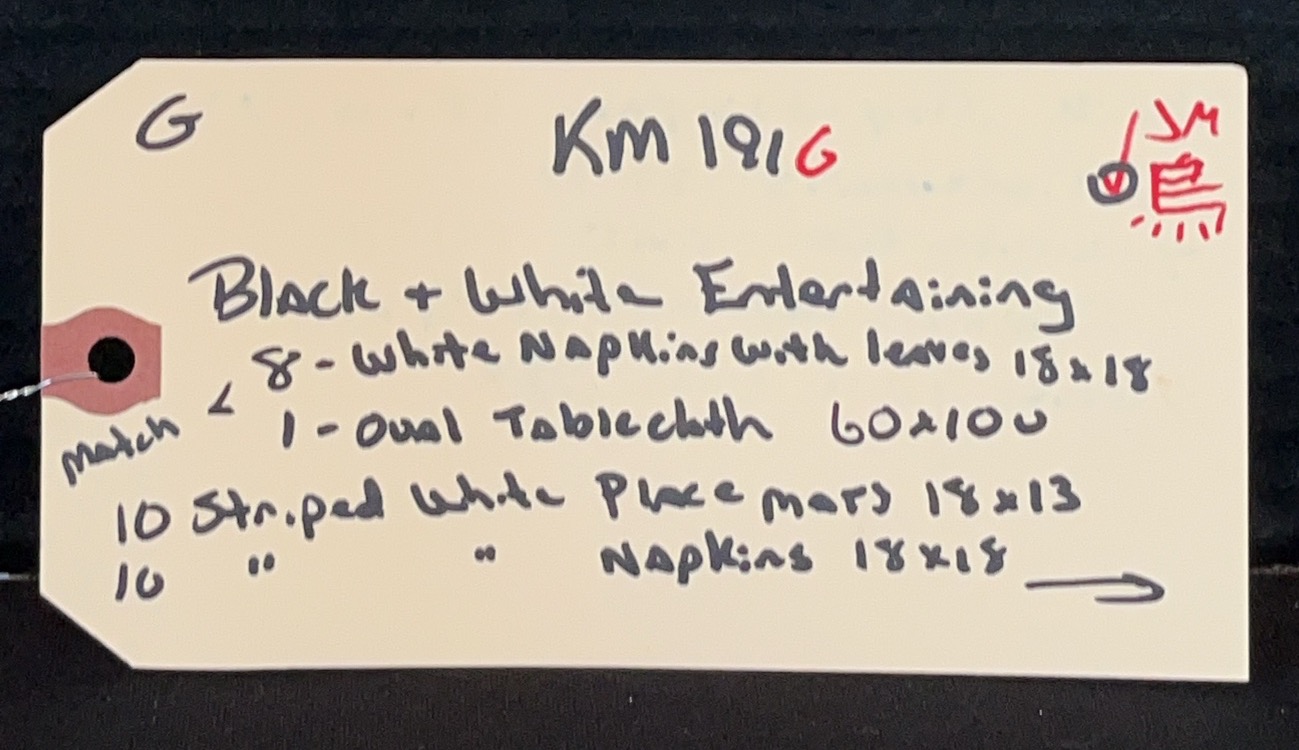 G
Km 191G
JM
Black + White Entertaining
8 - White Napkins with leaves 18x18
match < 1 - Oval Tablecloth 60x100
10 Striped White Place mats 18x13
10 " " Napkins 18x18 →